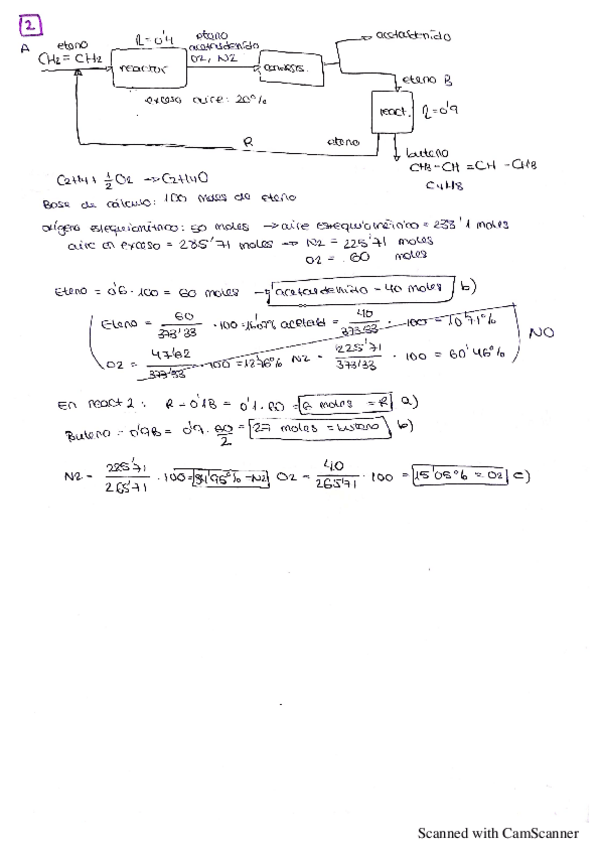 2
A
eteno
CH2 = CH2
η = 0'4
reactor
exceso aire: 20%
eteno
acetaldehido
O2, N2
acetaldehido
eteno B
react. η = 0'9
R
eteno
buteno
CH3 - CH = CH - CH3
C4H8
C2H4 + 1/2 O2 → C2H4O
Base de cálculo: 100 moles de eteno
oxígeno estequiométrico: 50 moles → aire estequiométrico = 238'1 moles
aire en exceso = 285'71 moles → N2 = 225'71 moles
O2 = 60 moles
Eteno = 0'6 · 100 = 60 moles → acetaldehido = 40 moles b)
Eteno = 60/373'33 · 100 = 16'07% acetald = 40/373'33 · 100 = 10'71%
O2 = 47'62/373'33 · 100 = 12'76% N2 = 225'71/373'33 · 100 = 60'46%
NO
En react 2: R = 0'1B = 0'1 · 60 = 6 moles = R a)
Buteno = 0'9B = 0'9 · 60/2 = 27 moles = buteno b)
N2 = 225'71/265'71 · 100 = 84'95% = N2 O2 = 40/265'71 · 100 = 15'05% = O2 c)
Scanned with CamScanner